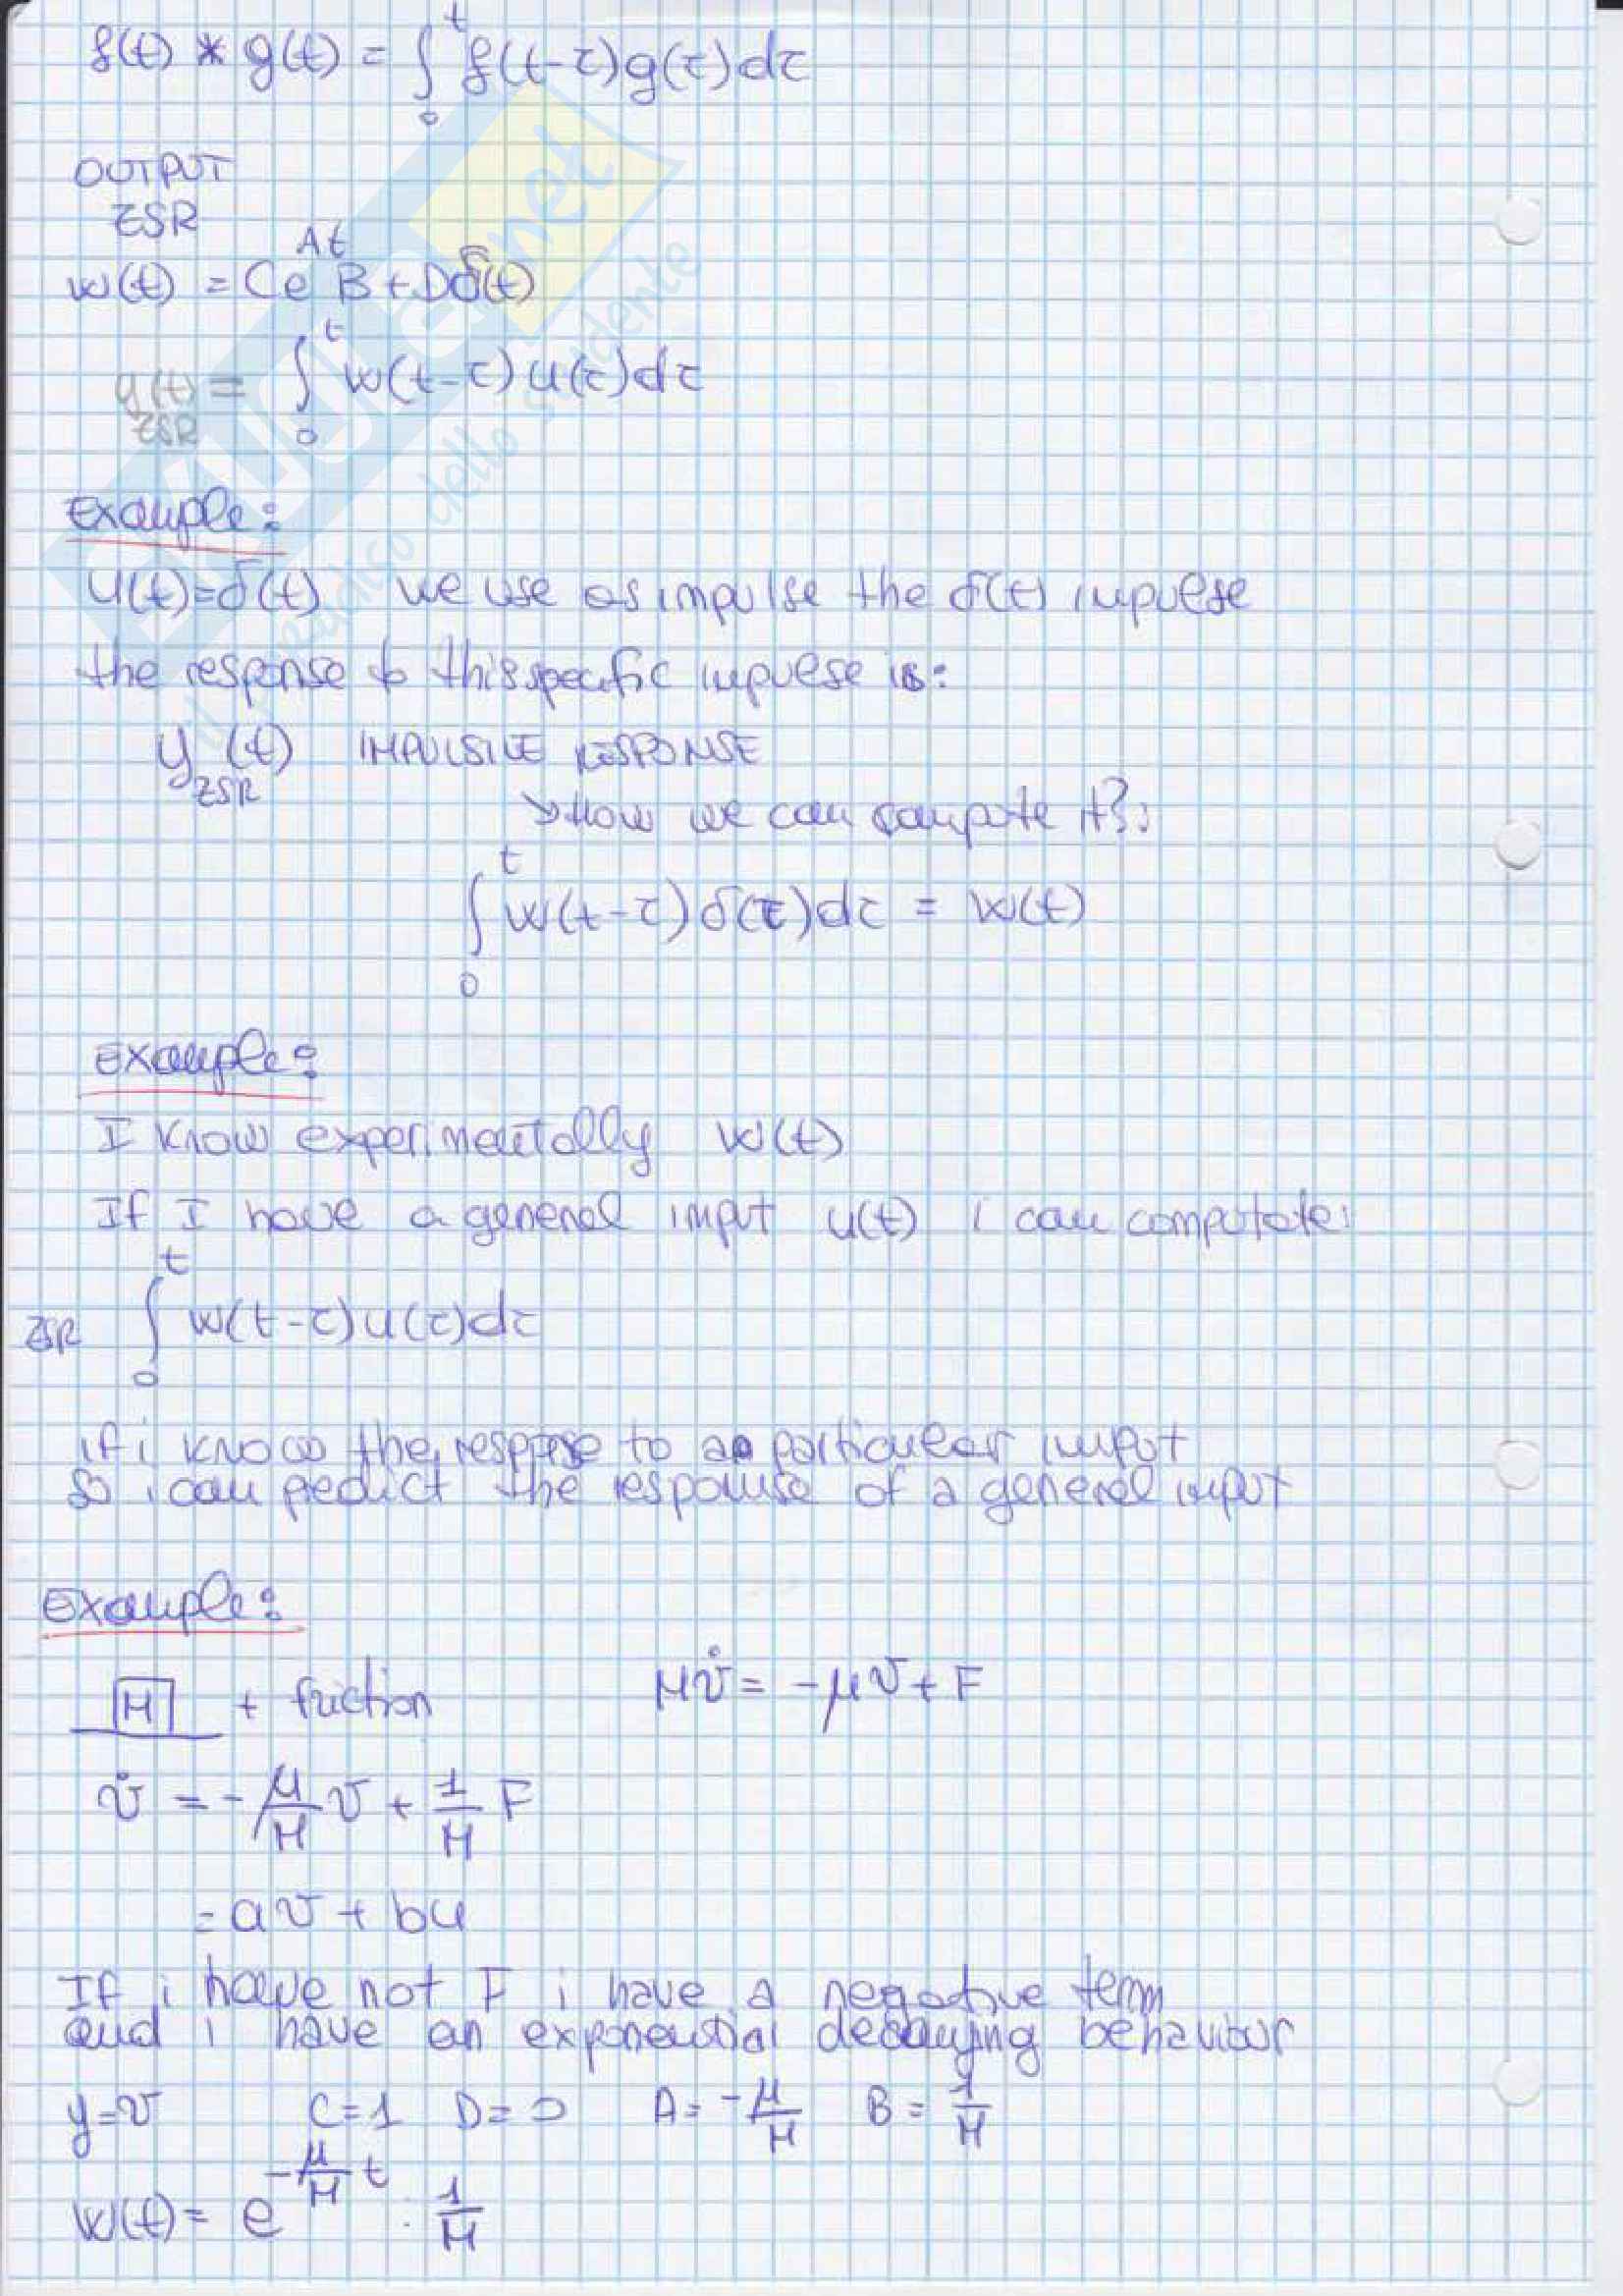 f(t) * g(t) = ∫₀ᵗ f(t-τ)g(τ)dτ
OUTPUT
ZSR
w(t) = Ce^{At}B + Dδ(t)
y(t) = ∫₀ᵗ w(t-τ)u(τ)dτ
ZSR
Example:
u(t)=δ(t) we use as impulse the δ(t) impulse
the response to this specific impulse is:
y_{ZSR}(t) IMPULSIVE RESPONSE
→How we can compute it?:
∫₀ᵗ w(t-τ)δ(τ)dτ = w(t)
Example:
I know experimentally w(t)
If I have a general input u(t) i can computate:
ZSR ∫₀ᵗ w(t-τ)u(τ)dτ
if i know the response to a particular input
so i can predict the response of a general input
Example:
M + friction Mv̇ = -μv + F
v̇ = -μ/M v + 1/M F
= av + bu
If i have not F i have a negative term
and i have an exponential decaying behaviour
y=v C=1 D=0 A=-μ/M B=1/M
w(t)= e^{-μ/M t} · 1/M
SKUOLA.net
il medico dello studente